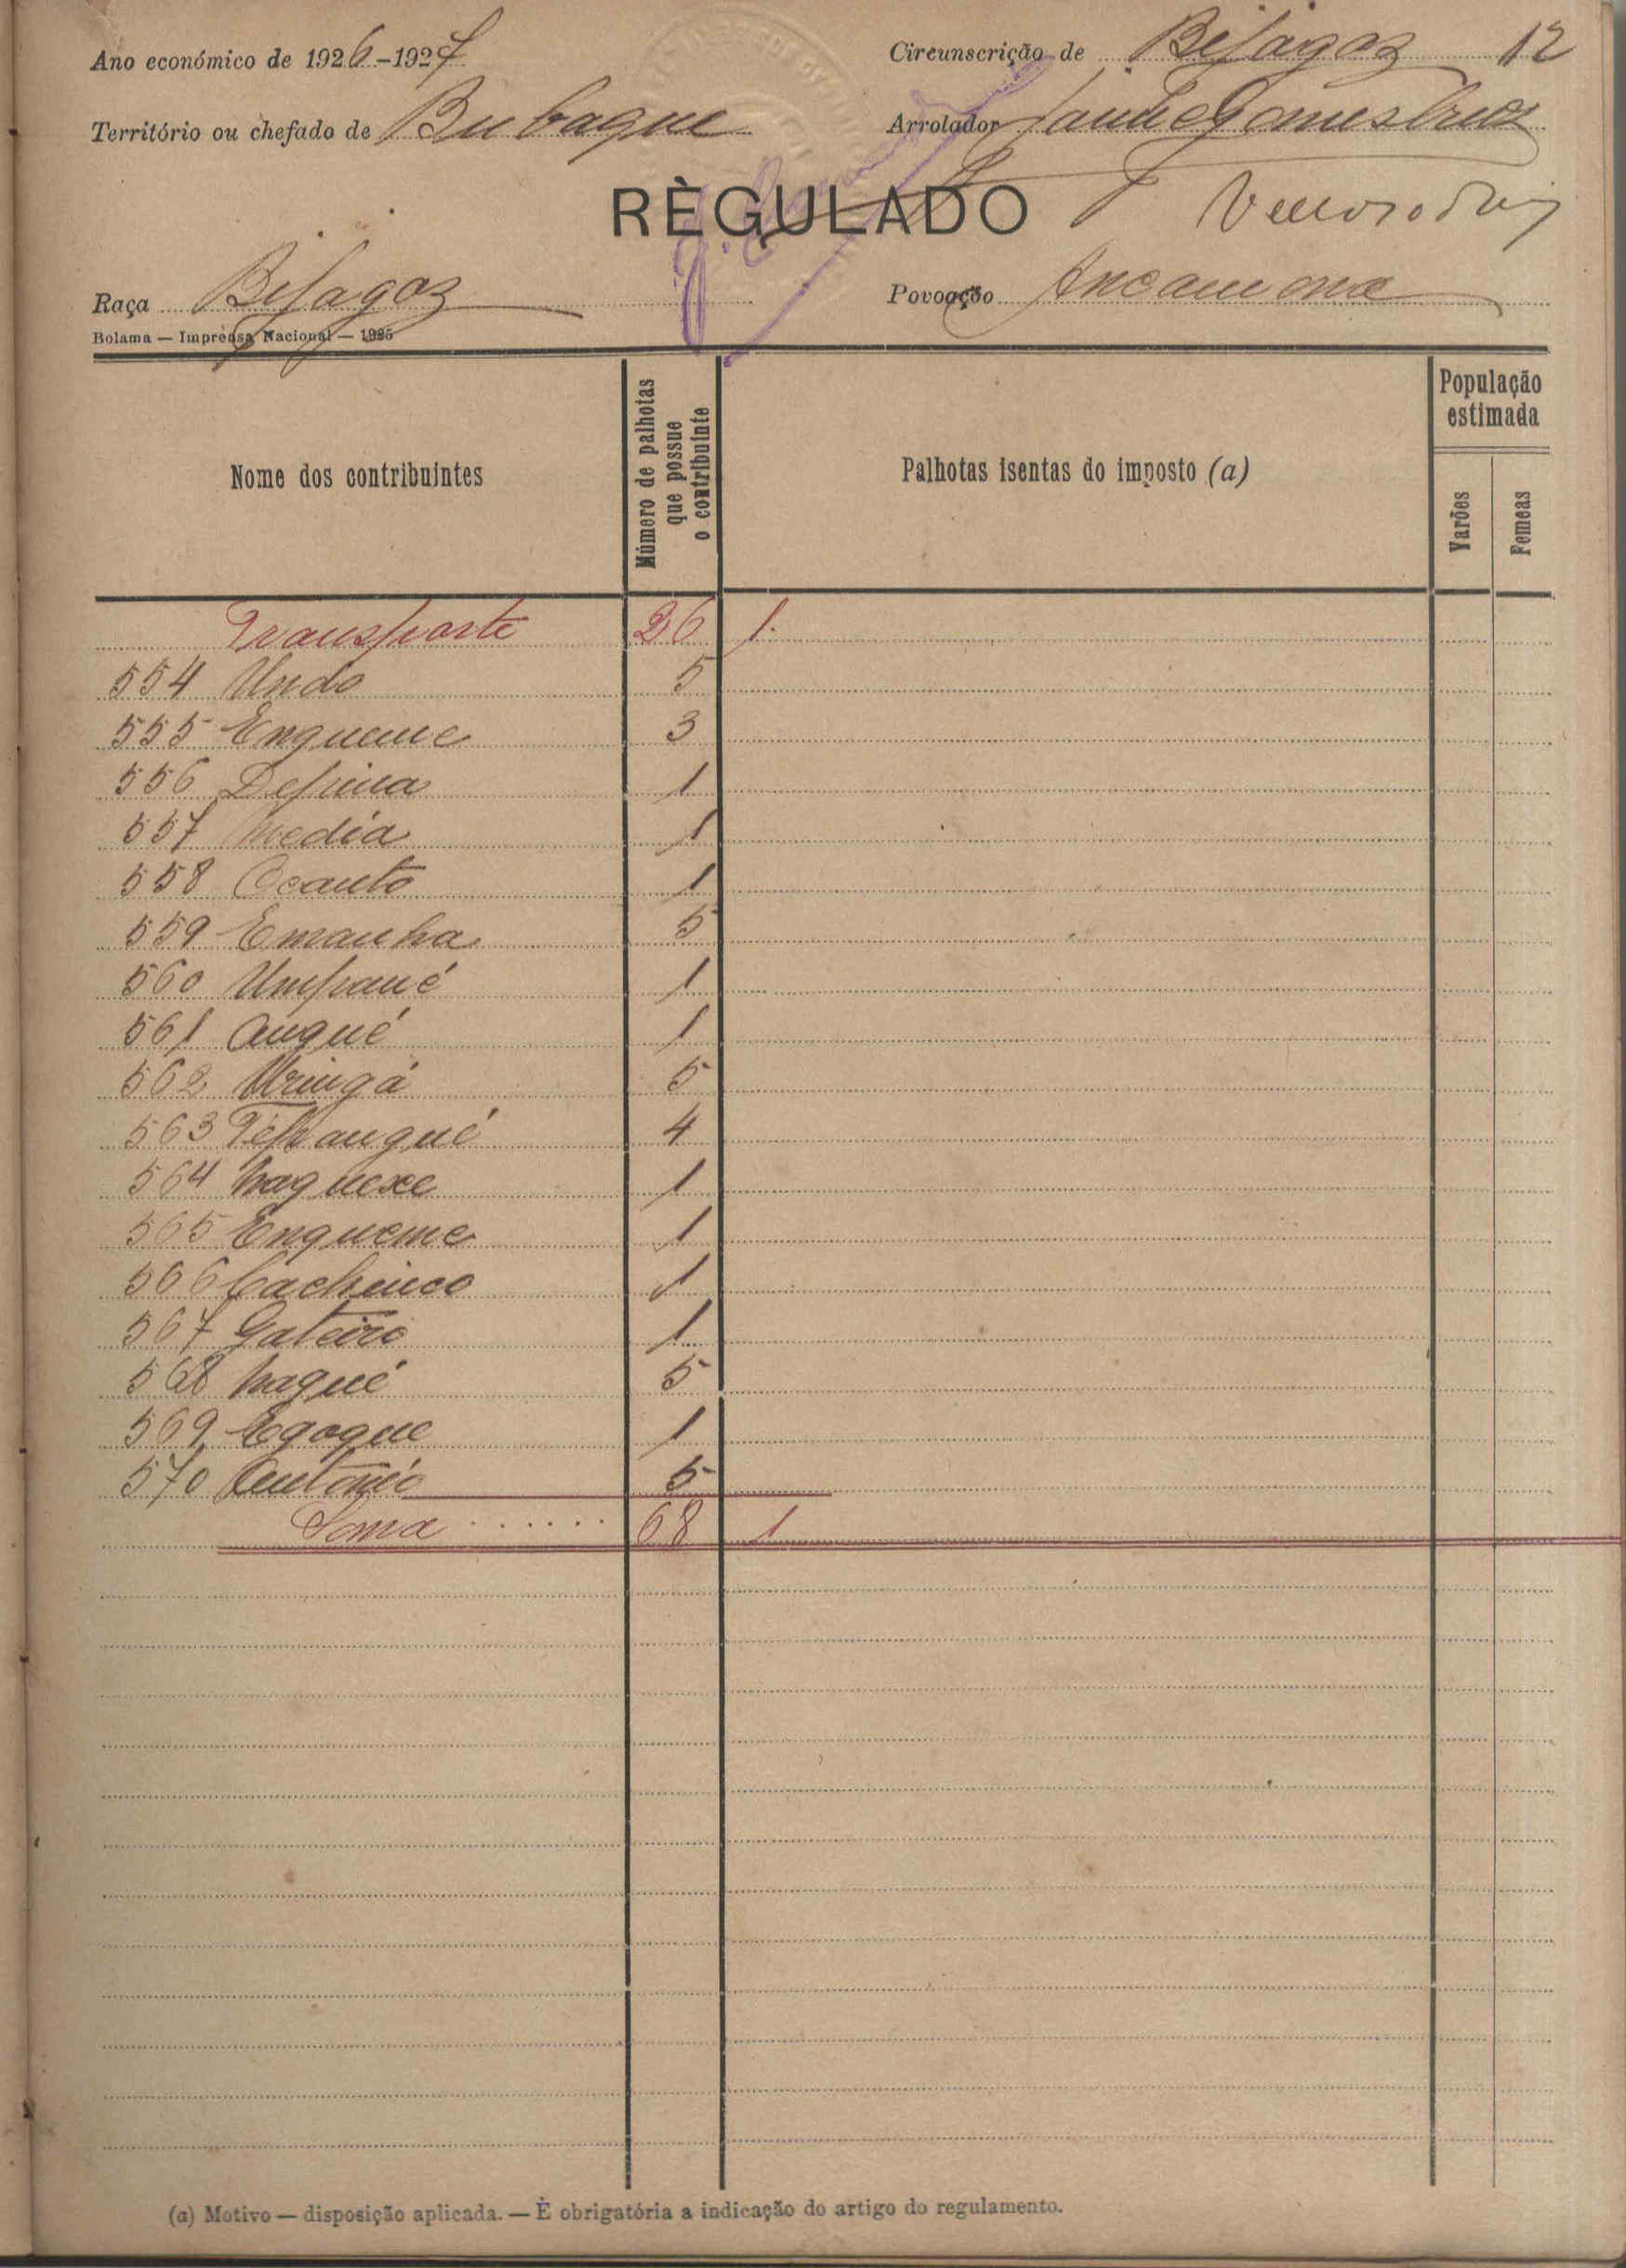 Ano económico de 1926-1927
Circunscrição de Bijagoz 12
Território ou chefado de Bubaque
Arrolador
RÈGULADO
Raça Bijagoz
Povoação Ancamona
Bolama — Imprènsa Nacional — 1925
Nome dos contribuintes
Número de palhotas que possue o contribuinte
Palhotas isentas do imposto (a)
População estimada
Varões
Femeas
Transporte 26 1
554 Undo 5
555 Enqueme 3
556 Depina 1
557 Media 1
558 Ocanto 1
559 Emanha 5
560 Umpané 1
561 Anqué 1
562 Uringá 5
563 Tépangué 4
564 Naguexe 1
565 Enqueme 1
566 Cachinco 1
567 Gateiro 1
568 Naqué 5
569 Egoque 1
570 António 5
Soma ...... 68 1
(a) Motivo — disposição aplicada. — È obrigatória a indicação do artigo do regulamento.